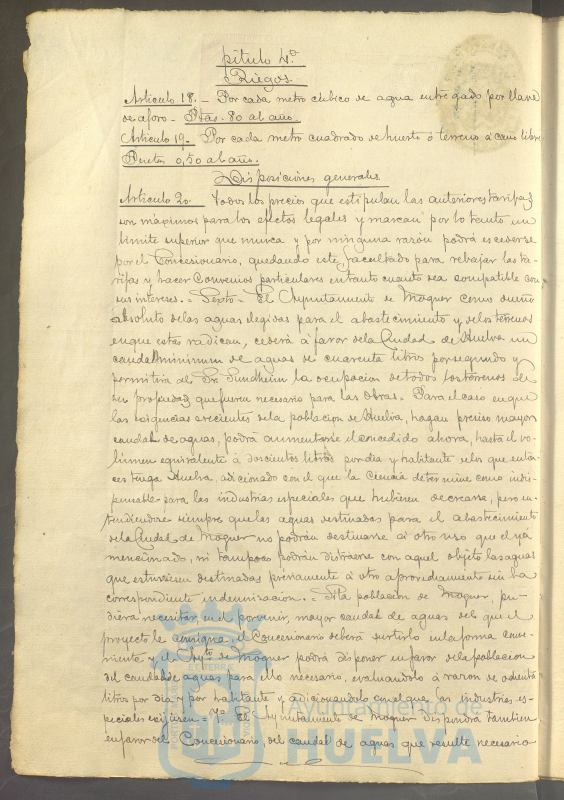 pitulo 4º
Riegos.
Articulo 18. - Por cada metro cúbico de agua entregado por llave
de aforo - Ptas. 80 al año.
Articulo 19 - Por cada metro cuadrado de huerto ó terreno á caño libre
Ptas 0,50 al año.
Disposiciones generales
Articulo 20. Todos los precios que estipulan las anteriores tarifas
son máximos para los efectos legales y marcan por lo tanto un
limite superior que nunca y por ninguna razón podrá escederse
por el Concesionario, quedando este facultado para rebajar las ta-
rifas y hacer Convenios particulares en tanto cuanto sea compatible con
sus intereses. = Sexto - El Ayuntamiento de Moguer como dueño
absoluto de las aguas elegidas para el abastecimiento y de los terrenos
en que estas radican, cederá á favor de la Ciudad de Huelva un
caudal minimum de aguas de cuarenta litros por segundo y
permitirá al Sr. Sundheim la ocupacion de todos los terrenos de
su propiedad que fueren necesario para las obras. Para el caso en que
las exigencias crecientes de la poblacion de Huelva, hagan preciso mayor
caudal de aguas, podrá aumentarse el concedido ahora, hasta el vo-
lumen equivalente á doscientos litros por dia y habitante de los que enton-
ces tenga Huelva, adicionado con el que la Ciencia determine como indis-
pensable para las industrias especiales que hubieren de crearse, pero en-
tendiendose siempre que las aguas destinadas para el abastecimiento
de la Ciudad de Moguer no podrán destinarse á otro uso que el ya
mencionado, ni tampoco podrán distraerse con aquel objeto las aguas
que estuviesen destinadas previamente á otro aprovechamiento sin la
correspondiente indemnizacion. = Si la poblacion de Moguer, pu-
diera necesitar, en el porvenir, mayor caudal de aguas del que el
proyecto le consigna, el Concesionario deberá surtirlo en la forma conve-
niente y el Aytº de Moguer podrá disponer en favor de la poblacion
del caudal de aguas para ello necesario, evaluandolo á razon de
litros por dia y por habitante y adicionandolo con el que las industrias es-
peciales exijiesen - 7º El Ayuntamiento de Moguer dispondrá tambien
en favor del Concesionario, del caudal de aguas que resulte necesario
Ayuntamiento de
HUELVA